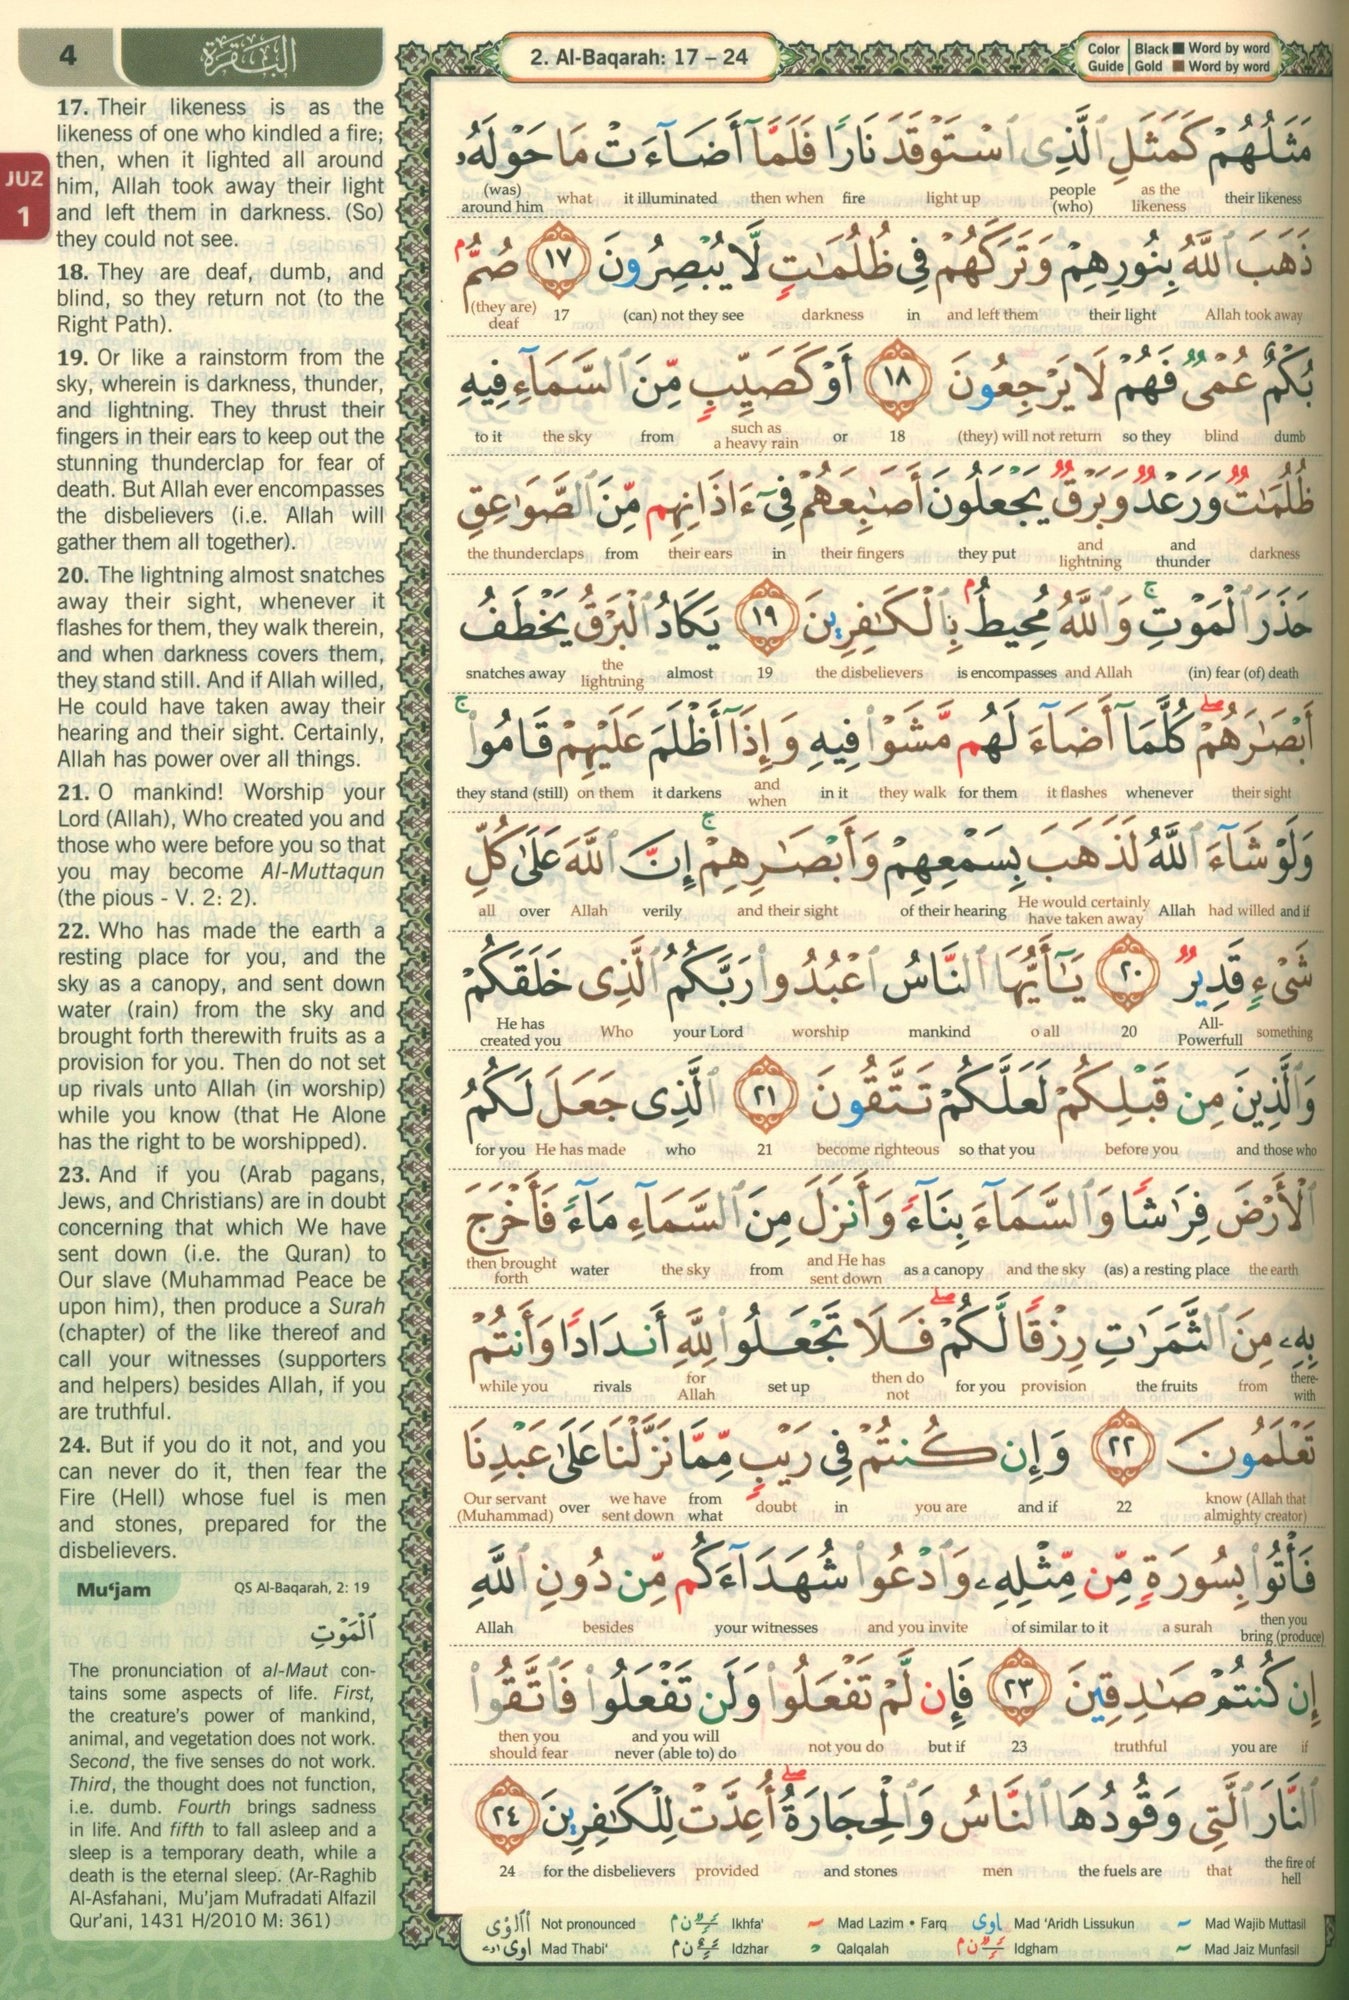 4
البقرة
2. Al-Baqarah: 17 – 24
Color Guide
Black ■ Word by word
Gold ■ Word by word
JUZ
1
17. Their likeness is as the
likeness of one who kindled a fire;
then, when it lighted all around
him, Allah took away their light
and left them in darkness. (So)
they could not see.
18. They are deaf, dumb, and
blind, so they return not (to the
Right Path).
19. Or like a rainstorm from the
sky, wherein is darkness, thunder,
and lightning. They thrust their
fingers in their ears to keep out the
stunning thunderclap for fear of
death. But Allah ever encompasses
the disbelievers (i.e. Allah will
gather them all together).
20. The lightning almost snatches
away their sight, whenever it
flashes for them, they walk therein,
and when darkness covers them,
they stand still. And if Allah willed,
He could have taken away their
hearing and their sight. Certainly,
Allah has power over all things.
21. O mankind! Worship your
Lord (Allah), Who created you and
those who were before you so that
you may become Al-Muttaqun
(the pious - V. 2: 2).
22. Who has made the earth a
resting place for you, and the
sky as a canopy, and sent down
water (rain) from the sky and
brought forth therewith fruits as a
provision for you. Then do not set
up rivals unto Allah (in worship)
while you know (that He Alone
has the right to be worshipped).
23. And if you (Arab pagans,
Jews, and Christians) are in doubt
concerning that which We have
sent down (i.e. the Quran) to
Our slave (Muhammad Peace be
upon him), then produce a Surah
(chapter) of the like thereof and
call your witnesses (supporters
and helpers) besides Allah, if you
are truthful.
24. But if you do it not, and you
can never do it, then fear the
Fire (Hell) whose fuel is men
and stones, prepared for the
disbelievers.
Mu‘jam
QS Al-Baqarah, 2: 19
الْمَوْتِ
The pronunciation of al-Maut con-
tains some aspects of life. First,
the creature's power of mankind,
animal, and vegetation does not work.
Second, the five senses do not work.
Third, the thought does not function,
i.e. dumb. Fourth brings sadness
in life. And fifth to fall asleep and a
sleep is a temporary death, while a
death is the eternal sleep. (Ar-Raghib
Al-Asfahani, Mu'jam Mufradati Alfazil
Qur'ani, 1431 H/2010 M: 361)
مَثَلُهُمْ كَمَثَلِ الَّذِى اسْتَوْقَدَ نَارًا فَلَمَّآ أَضَآءَتْ مَا حَوْلَهُۥ
their likeness as the likeness people (who) light up fire then when it illuminated what (was) around him
ذَهَبَ اللَّهُ بِنُورِهِمْ وَتَرَكَهُمْ فِى ظُلُمَٰتٍ لَّا يُبْصِرُونَ ١٧ صُمٌّۢ
Allah took away their light and left them in darkness (can) not they see 17 (they are) deaf
بُكْمٌ عُمْىٌ فَهُمْ لَا يَرْجِعُونَ ١٨ أَوْ كَصَيِّبٍ مِّنَ السَّمَآءِ فِيهِ
dumb blind so they (they) will not return 18 or such as a heavy rain from the sky to it
ظُلُمَٰتٌ وَرَعْدٌ وَبَرْقٌ يَجْعَلُونَ أَصَٰبِعَهُمْ فِىٓ ءَاذَانِهِم مِّنَ الصَّوَٰعِقِ
darkness and thunder and lightning they put their fingers in their ears from the thunderclaps
حَذَرَ الْمَوْتِ ۚ وَاللَّهُ مُحِيطٌۢ بِالْكَٰفِرِينَ ١٩ يَكَادُ الْبَرْقُ يَخْطَفُ
(in) fear (of) death and Allah is encompasses the disbelievers 19 almost the lightning snatches away
أَبْصَٰرَهُمْ ۖ كُلَّمَآ أَضَآءَ لَهُم مَّشَوْا فِيهِ وَإِذَآ أَظْلَمَ عَلَيْهِمْ قَامُوا ۚ
their sight whenever it flashes for them they walk in it and when it darkens on them they stand (still)
وَلَوْ شَآءَ اللَّهُ لَذَهَبَ بِسَمْعِهِمْ وَأَبْصَٰرِهِمْ ۚ إِنَّ اللَّهَ عَلَىٰ كُلِّ
and if had willed Allah He would certainly have taken away of their hearing and their sight verily Allah over all
شَىْءٍ قَدِيرٌ ٢٠ يَٰٓأَيُّهَا النَّاسُ اعْبُدُوا رَبَّكُمُ الَّذِى خَلَقَكُمْ
something All-Powerfull 20 o all mankind worship your Lord Who He has created you
وَالَّذِينَ مِن قَبْلِكُمْ لَعَلَّكُمْ تَتَّقُونَ ٢١ الَّذِى جَعَلَ لَكُمُ
and those who before you so that you become righteous 21 who He has made for you
الْأَرْضَ فِرَٰشًا وَالسَّمَآءَ بِنَآءً وَأَنزَلَ مِنَ السَّمَآءِ مَآءً فَأَخْرَجَ
the earth (as) a resting place and the sky as a canopy and He has sent down from the sky water then brought forth
بِهِۦ مِنَ الثَّمَرَٰتِ رِزْقًا لَّكُمْ ۖ فَلَا تَجْعَلُوا لِلَّهِ أَندَادًا وَأَنتُمْ
there-with from the fruits provision for you then do not set up for Allah rivals while you
تَعْلَمُونَ ٢٢ وَإِن كُنتُمْ فِى رَيْبٍ مِّمَّا نَزَّلْنَا عَلَىٰ عَبْدِنَا
know (Allah that almighty creator) 22 and if you are in doubt from what we have sent down over Our servant (Muhammad)
فَأْتُوا بِسُورَةٍ مِّن مِّثْلِهِۦ وَادْعُوا شُهَدَآءَكُم مِّن دُونِ اللَّهِ
then you bring (produce) a surah of similar to it and you invite your witnesses besides Allah
إِن كُنتُمْ صَٰدِقِينَ ٢٣ فَإِن لَّمْ تَفْعَلُوا وَلَن تَفْعَلُوا فَاتَّقُوا
if you are truthful 23 but if not you do and you will never (able to) do then you should fear
النَّارَ الَّتِى وَقُودُهَا النَّاسُ وَالْحِجَارَةُ ۖ أُعِدَّتْ لِلْكَٰفِرِينَ ٢٤
the fire of hell that the fuels are men and stones provided for the disbelievers 24
Not pronounced Ikhfa' Mad Lazim • Farq Mad 'Aridh Lissukun Mad Wajib Muttasil
Mad Thabi' Idzhar Qalqalah Idgham Mad Jaiz Munfasil